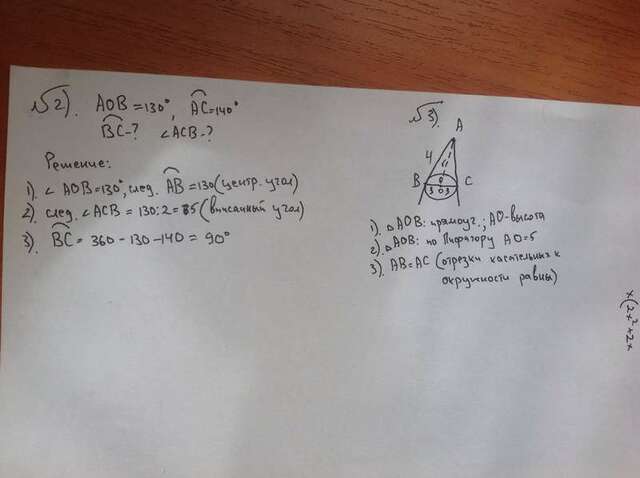 №2). AOB = 130°, ◠AC = 140°
◠BC - ? ∠ACB - ?
Решение:
1). ∠ AOB = 130°, след. ◠AB = 130 (центр. угол)
2). след. ∠ACB = 130:2 = 65 (вписанный угол)
3). ◠BC = 360 - 130 - 140 = 90°
№3).
A
4
B
C
0
3 0 3
1). △AOB: прямоуг.; AO-высота
2). △AOB: по Пифагору AO = 5
3). AB = AC (отрезки касательных к
окружности равны)
x(2x²+2x